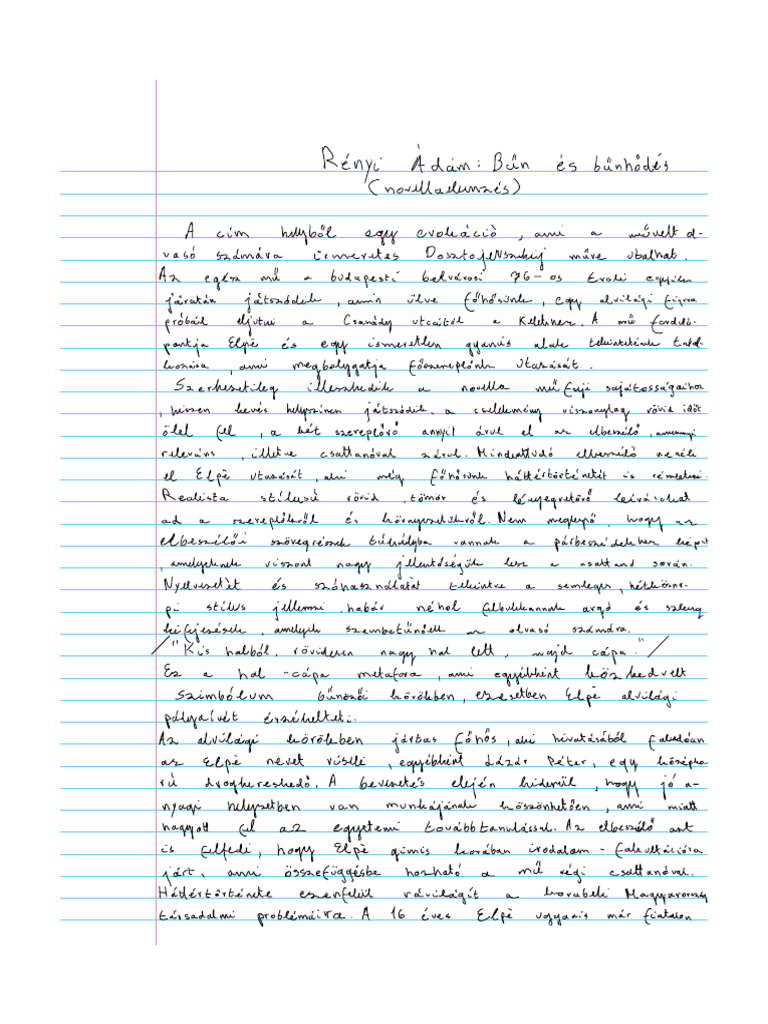 Rényi Ádám: Bűn és bűnhődés
(novellaelemzés)
A cím helyből egy evokáció, ami a művelt ol-
vasó számára ismeretes Dosztojevszkij műre utalhat.
Az egész mű a budapesti belvárosi 76-os troli egyik
járatán játszódik, amin ülve főhősünk, egy alvilági figura
próbál eljutni a Csanády utcától a Keletihez. A mű fordul-
pontja Elpé és egy ismeretlen gyanús alak tekintetének talál-
kozása, ami megbolygatja főszereplőnk utazását.
Szerkezetileg illeszkedik a novella műfaji sajátosságaihoz
, hiszen kevés helyszínen játszódik, a cselekmény viszonylag rövid időt
ölel fel, a két szereplőről annyit árul el az elbeszélő, amennyi
releváns, illetve csattanóval zárul. Mindentudó elbeszélő meséli
el Elpé utazását, aki még főhősünk háttértörténetét is részletezi.
Realista stílusú rövid, tömör és lényegretörő leírásokat
ad a szereplőkről és környezetükről. Nem meglepő, hogy az
elbeszélői szövegrészek túlsúlyban vannak a párbeszédekhez képest
, amelyeknek viszont nagy jelentőségük lesz a csattanó során.
Nyelvezetét és szóhasználatát tekintve a semleges, hétközna-
pi stílus jellemzi, habár néhol felbukkannak argó és szleng
kifejezések, amelyek szembetűnőek az olvasó számára.
"Kis halból, rövidesen nagy hal lett, majd cápa."
Ez a hal-cápa metafora, ami egyébként közkedvelt
szimbólum bűnözői körökben, ezesetben Elpé alvilági
pályaívét érzékelteti.
Az alvilági körökben jártas főhős, aki hivatásából fakadóan
az Elpé nevet viseli, egyébként Lázár Péter, egy középko-
rú drogkereskedő. A bevezetés elején kiderül, hogy jó a-
nyagi helyzetben van munkájának köszönhetően, ami miatt
hagyott fel az egyetemi továbbtanulással. Az elbeszélő azt
is felfedi, hogy Elpé gimis korában irodalom-fakultációra
járt, ami összefüggésbe hozható a mű végi csattanóval.
Háttértörténete ezenfelül rávilágít a korabeli Magyarország
társadalmi problémáira. A 16 éves Elpé ugyanis már fiatalon